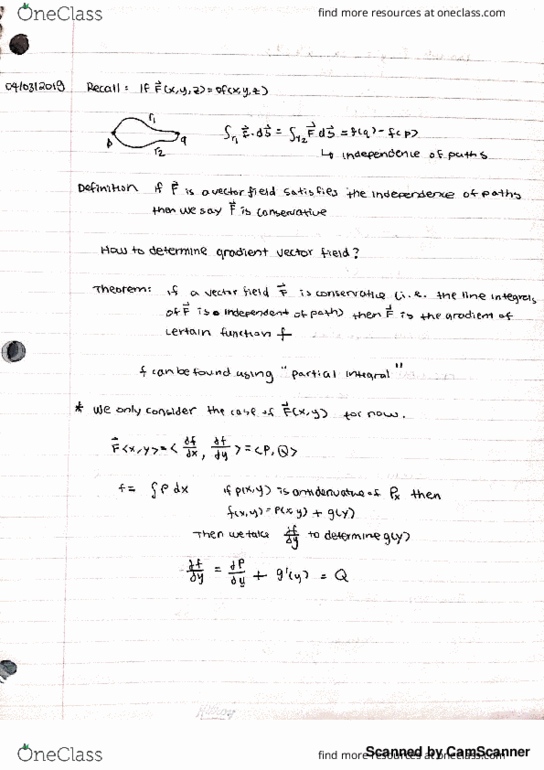 OneClass
find more resources at oneclass.com
04/03/2019 Recall: If F⃗(x,y,z)=∇f(x,y,z)
r₁
p q
r₂
∫r₁ F⃗·dS⃗ = ∫r₂ F⃗ dS⃗ = f(q) - f(p)
↳ independence of paths
Definition if F⃗ is a vector field satisfies the independence of paths
then we say F⃗ is conservative
How to determine gradient vector field?
Theorem: if a vector field F⃗ is conservative (i.e. the line integrals
of F⃗ is independent of path) then F⃗ is the gradient of
certain function f
f can be found using "partial integral"
* We only consider the case of F⃗(x,y) for now.
F⃗<x,y>=< ∂f/∂x, ∂f/∂y > = <P,Q>
f= ∫P dx if p(x,y) is antiderivative of Px then
f(x,y)=P(x,y) + g(y)
Then we take ∂f/∂y to determine g(y)
∂f/∂y = ∂P/∂y + g'(y) = Q
OneClass
find more resources at oneclass.com
Scanned by CamScanner